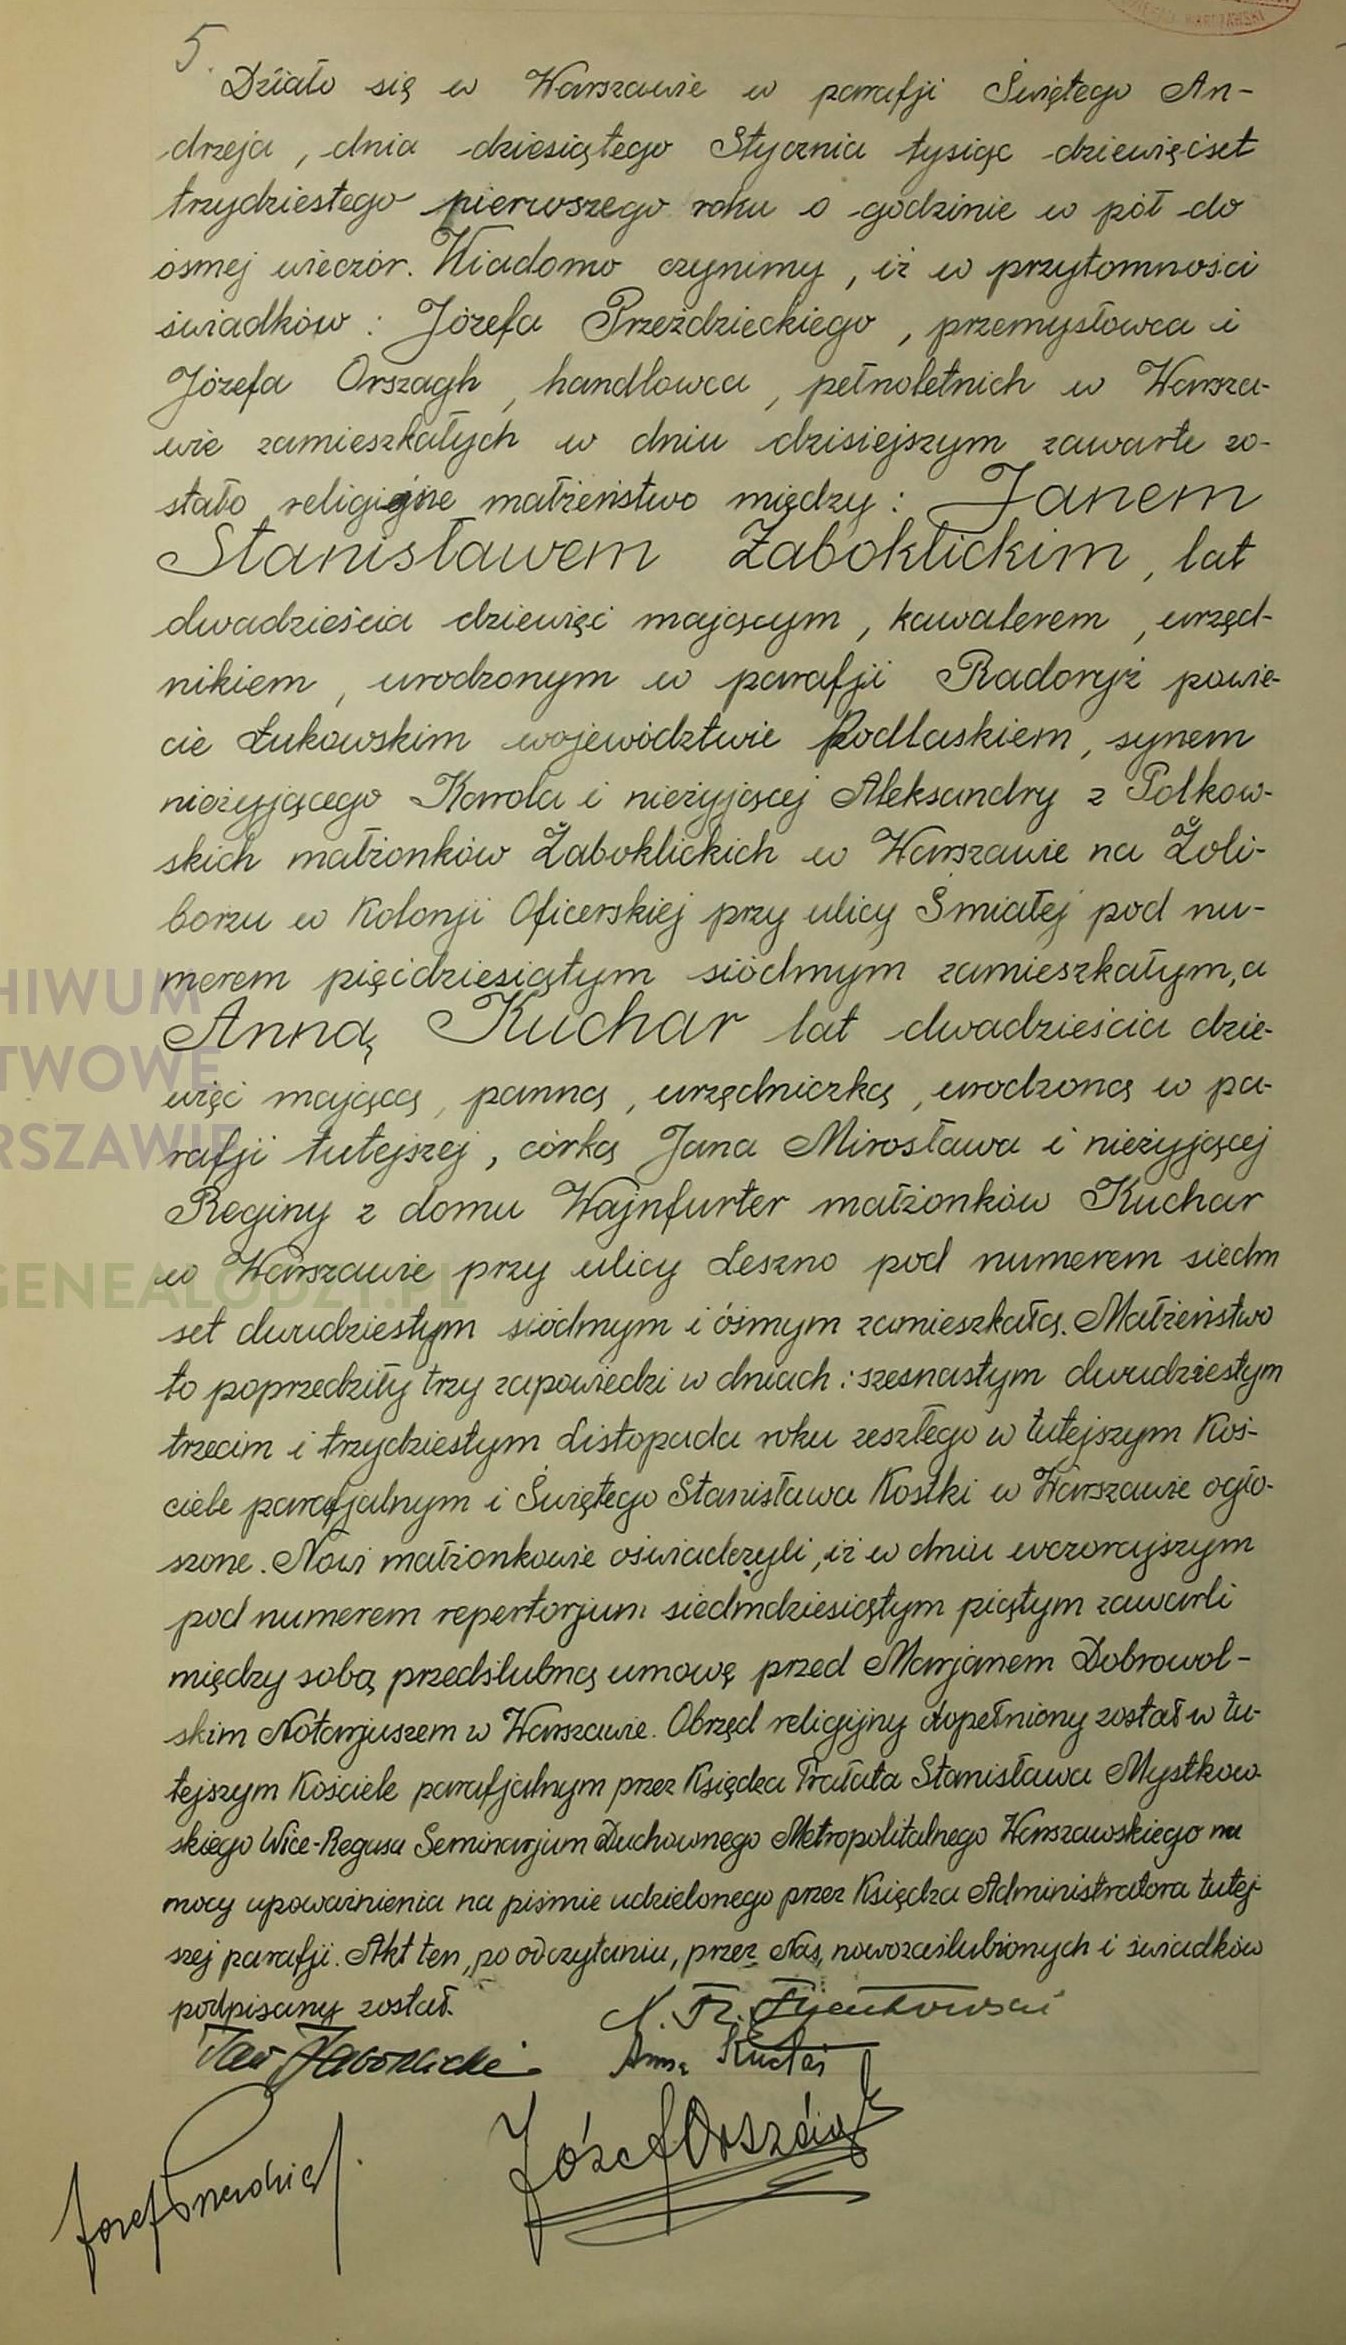 5.
Działo się w Warszawie w parafji Świętego An-
drzeja, dnia dziesiątego Stycznia tysiąc dziewięćset
trzydziestego pierwszego roku o godzinie w pół do
ósmej wieczór. Wiadomo czynimy, iż w przytomności
świadków: Józefa Przeździeckiego, przemysłowca i
Józefa Orszagh, handlowca, pełnoletnich w Warsza-
wie zamieszkałych w dniu dzisiejszym zawarte zo-
stało religijne małżeństwo między: Janem
Stanisławem Żaboklickim, lat
dwadzieścia dziewięć mającym, kawalerem, urzęd-
nikiem, urodzonym w parafji Radoryż powie-
cie Łukowskim województwie Podlaskiem, synem
nieżyjącego Karola i nieżyjącej Aleksandry z Polkow-
skich małżonków Żaboklickich w Warszawie na Żoli-
borzu w Kolonji Oficerskiej przy ulicy Śmiałej pod nu-
merem pięćdziesiątym siódmym zamieszkałym, a
Anną Kuchar lat dwadzieścia dzie-
więć mającą, panną, urzędniczką, urodzoną w pa-
rafji tutejszej, córką Jana Mirosława i nieżyjącej
Reginy z domu Wajnfurter małżonków Kuchar
w Warszawie przy ulicy Leszno pod numerem siedm
set dwudziestym siódmym i ósmym zamieszkałą. Małżeństwo
to poprzedziły trzy zapowiedzi w dniach: szesnastym dwudziestym
trzecim i trzydziestym Listopada roku zeszłego w tutejszym Koś-
ciele parafjalnym i Świętego Stanisława Kostki w Warszawie ogło-
szone. Nowi małżonkowie oświadczyli, iż w dniu wczorajszym
pod numerem repertorjum siedmdziesiątym piątym zawarli
między sobą przedślubną umowę przed Marjanem Dobrowol-
skim Notarjuszem w Warszawie. Obrzęd religijny dopełniony został w tu-
tejszym Kościele parafjalnym przez Księdza Prałata Stanisława Mystkow-
skiego Wice-Regusa Seminarjum Duchownego Metropolitalnego Warszawskiego na
mocy upoważnienia na piśmie udzielonego przez Księdza Administratora tutej-
szej parafji. Akt ten, po odczytaniu, przez Nas, nowozaślubionych i świadków
podpisany został.
Jan Żaboklicki Anna Kuchar
Józef Orszagh
HIWUM
TWOWE
RSZAWIE
GENEALODZY.PL